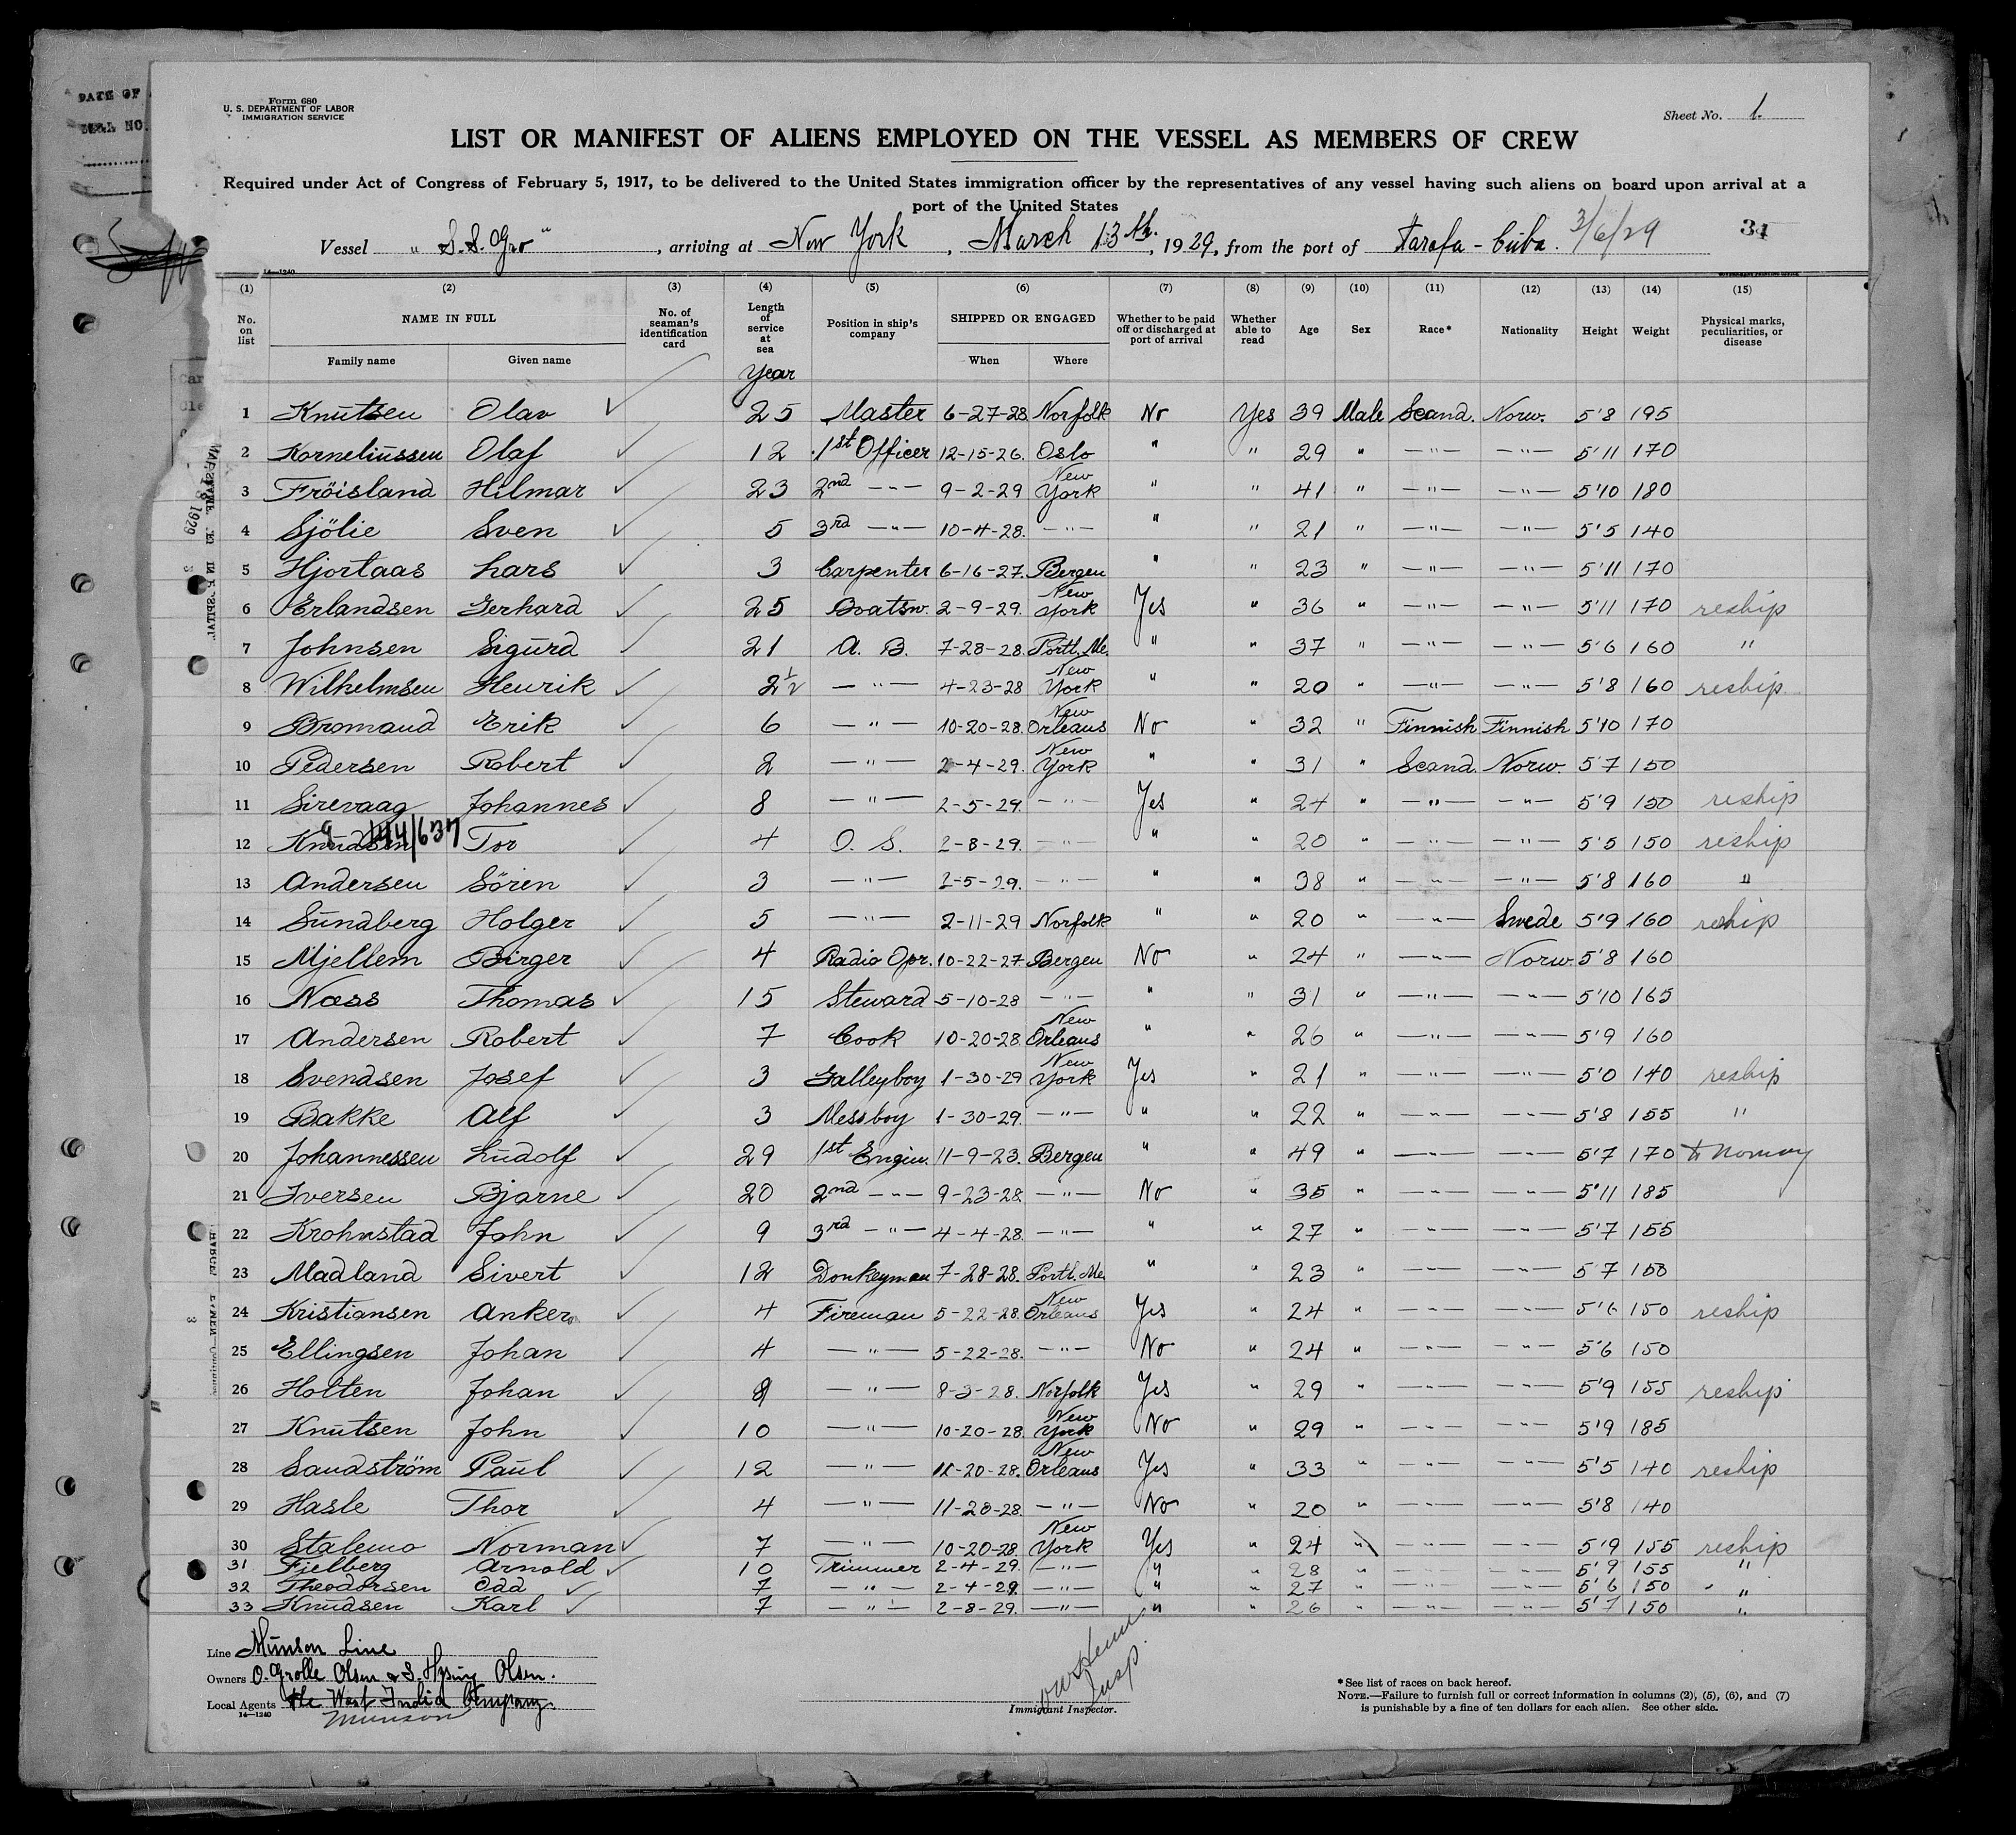 DATE OF
Form 680
U. S. DEPARTMENT OF LABOR
IMMIGRATION SERVICE
Sheet No. 1.
LIST OR MANIFEST OF ALIENS EMPLOYED ON THE VESSEL AS MEMBERS OF CREW
Required under Act of Congress of February 5, 1917, to be delivered to the United States immigration officer by the representatives of any vessel having such aliens on board upon arrival at a
port of the United States
Vessel "S.S. Gro", arriving at New York, March 13th, 1929, from the port of Tarafa - Cuba. 3/6/29 34
14-1240
(1) (2) (3) (4) (5) (6) (7) (8) (9) (10) (11) (12) (13) (14) (15)
No. on list NAME IN FULL No. of seaman's identification card Length of service at sea Position in ship's company SHIPPED OR ENGAGED Whether to be paid off or discharged at port of arrival Whether able to read Age Sex Race* Nationality Height Weight Physical marks, peculiarities, or disease
Family name Given name When Where
Year
1 Knutsen Olav ✓ 25 Master 6-27-28 Norfolk No Yes 39 Male Scand. Norw. 5'8 195
2 Korneliussen Olaf ✓ 12 1st Officer 12-15-26. Oslo " " 29 " —"— —"— 5'11 170
3 Fröisland Hilmar ✓ 23 2nd —"— 9-2-29 New York " " 41 " —"— —"— 5'10 180
4 Sjölie Sven ✓ 5 3rd —"— 10-4-28. —"— " " 21 " —"— —"— 5'5 140
5 Hjortaas Lars ✓ 3 Carpenter 6-16-27. Bergen " " 23 " —"— —"— 5'11 170
6 Erlandsen Gerhard ✓ 25 Boatsw. 2-9-29. New York Yes " 36 " —"— —"— 5'11 170 reship
7 Johnsen Sigurd ✓ 21 A. B. 7-28-28. Portl. Me. " " 37 " —"— —"— 5'6 160 "
8 Wilhelmsen Henrik ✓ 2½ —"— 4-23-28 New York " " 20 " —"— —"— 5'8 160 reship
9 Bromaud Erik ✓ 6 —"— 10-20-28. New Orleans No " 32 " Finnish Finnish 5'10 170
10 Pedersen Robert ✓ 2 —"— 2-4-29. New York " " 31 " Scand. Norw. 5'7 150
11 Sirevaag Johannes ✓ 8 —"— 2-5-29. —"— Yes " 24 " —"— —"— 5'9 150 reship
12 Knudsen Tor ✓ 4 O. S. 2-8-29. —"— " " 20 " —"— —"— 5'5 150 reship
13 Andersen Sören ✓ 3 —"— 2-5-29. —"— " " 38 " —"— —"— 5'8 160 "
14 Sundberg Holger ✓ 5 —"— 2-11-29 Norfolk " " 20 " —"— Swede 5'9 160 reship
15 Mjellem Birger ✓ 4 Radio Opr. 10-22-27. Bergen No " 24 " —"— Norw. 5'8 160
16 Næss Thomas ✓ 15 Steward 5-10-28 —"— " " 31 " —"— —"— 5'10 165
17 Andersen Robert ✓ 7 Cook 10-20-28. New Orleans " " 26 " —"— —"— 5'9 160
18 Svendsen Josef ✓ 3 Galleyboy 1-30-29 New York Yes " 21 " —"— —"— 5'0 140 reship
19 Bakke Alf ✓ 3 Messboy 1-30-29. —"— " " 22 " —"— —"— 5'8 155 "
20 Johannessen Ludolf ✓ 29 1st Engin. 11-9-23. Bergen " " 49 " —"— —"— 5'7 170 to Norway
21 Iversen Bjarne ✓ 20 2nd —"— 9-23-28 —"— No " 35 " —"— —"— 5'11 185
22 Krohnstad John ✓ 9 3rd —"— 4-4-28. —"— " " 27 " —"— —"— 5'7 155
23 Madland Sivert ✓ 12 Donkeyman 7-28-28. Portl. Me. " " 23 " —"— —"— 5'7 150
24 Kristiansen Anker ✓ 4 Fireman 5-22-28. New Orleans Yes " 24 " —"— —"— 5'6 150 reship
25 Ellingsen Johan ✓ 4 —"— 5-22-28. —"— No " 24 " —"— —"— 5'6 150
26 Holten Johan ✓ 8 —"— 8-3-28. Norfolk Yes " 29 " —"— —"— 5'9 155 reship
27 Knutsen John ✓ 10 —"— 10-20-28. New York No " 29 " —"— —"— 5'9 185
28 Sandström Paul ✓ 12 —"— 11-20-28. New Orleans Yes " 33 " —"— —"— 5'5 140 reship
29 Hasle Thor ✓ 4 —"— 11-20-28. —"— No " 20 " —"— —"— 5'8 140
30 Stalemo Norman ✓ 7 —"— 10-20-28. New York Yes " 24 " —"— —"— 5'9 155 reship
31 Fjelberg Arnold ✓ 10 Trimmer 2-4-29. —"— " " 28 " —"— —"— 5'9 155 "
32 Theodorsen Odd ✓ 7 —"— 2-4-29. —"— " " 27 " —"— —"— 5'6 150 "
33 Knudsen Karl ✓ 7 —"— 2-8-29. —"— " " 26 " —"— —"— 5'7 150 "
Line Munson Line
Owners O. Grolle Olsen & S. Olsen.
Local Agents the West India Company.
14-1240 Munson
Insp.
Immigrant Inspector.
*See list of races on back hereof.
NOTE.—Failure to furnish full or correct information in columns (2), (5), (6), and (7)
is punishable by a fine of ten dollars for each alien. See other side.